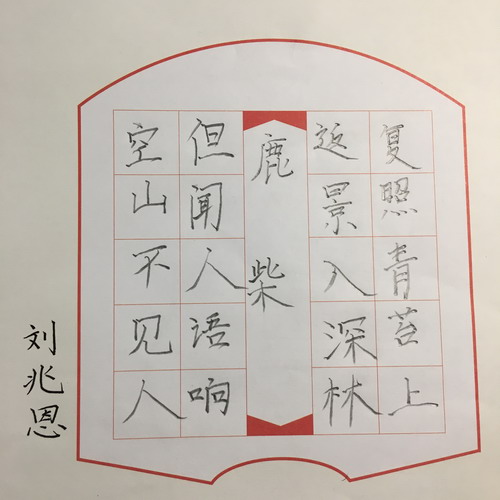 鹿柴
空山不见人
但闻人语响
返景入深林
复照青苔上
刘兆恩